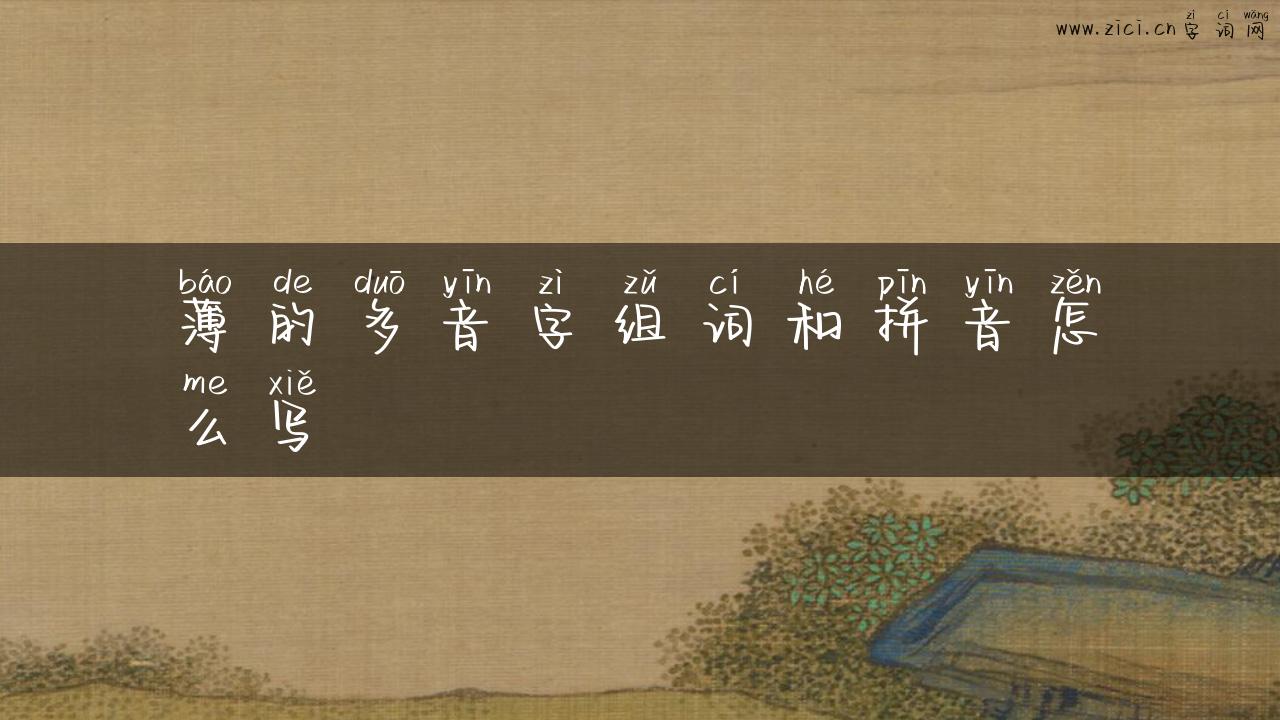 zì cí wǎng
www.zici.cn 字 词 网
báo de duō yīn zì zǔ cí hé pīn yīn zěn
薄 的 多 音 字 组 词 和 拼 音 怎
me xiě
么 写